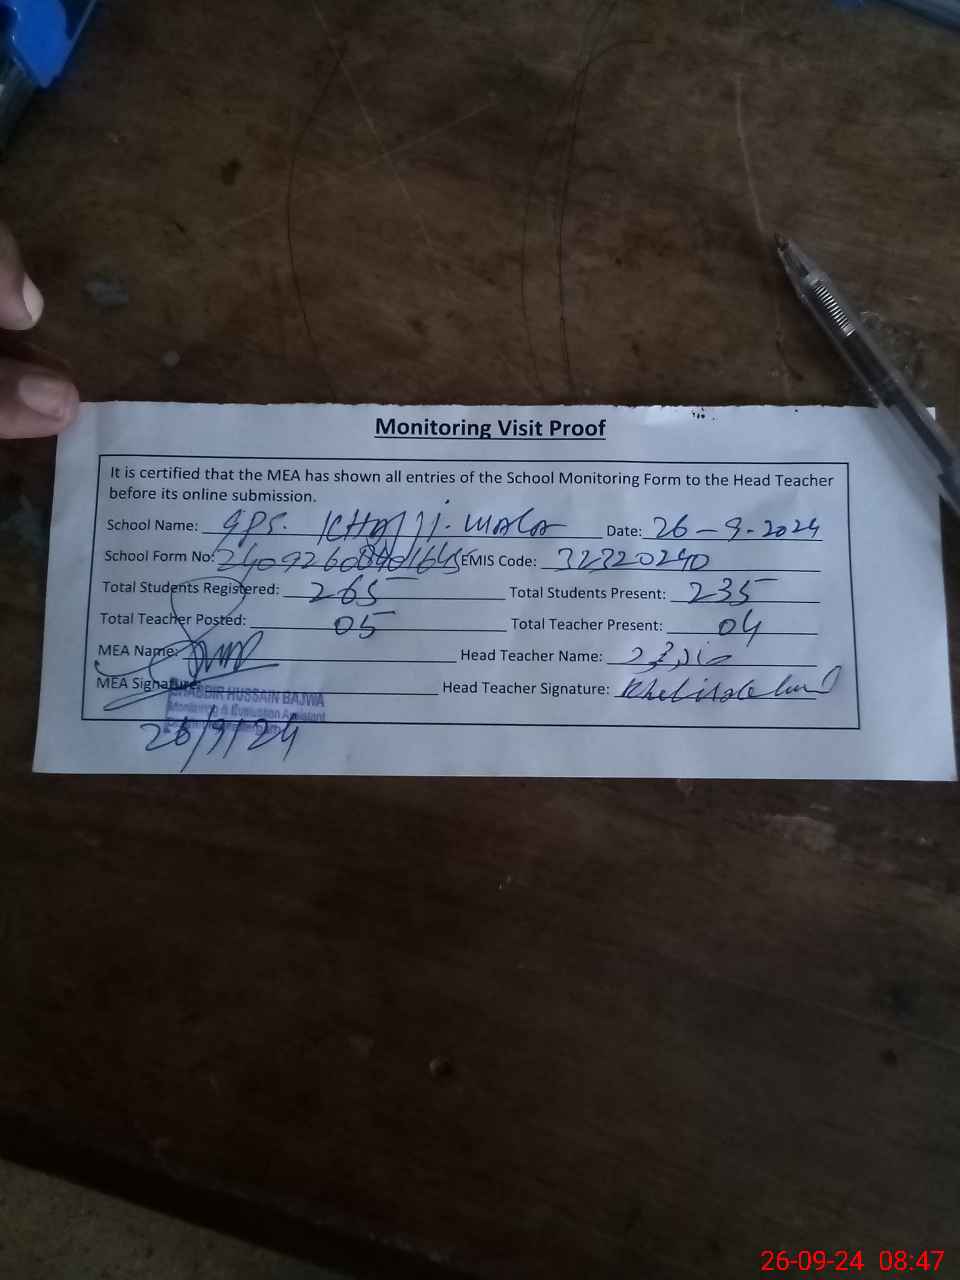 Monitoring Visit Proof
It is certified that the MEA has shown all entries of the School Monitoring Form to the Head Teacher
before its online submission.
School Name: GPS. Date: 26-9-2024
School Form No: EMIS Code: 32320240
Total Students Registered: 265 Total Students Present: 235
Total Teacher Posted: 05 Total Teacher Present: 04
MEA Name: Head Teacher Name:
MEA Signature: Head Teacher Signature:
SHABBIR HUSSAIN BAJWA
Monitoring & Evaluation Assistant
26/9/24
26-09-24 08:47